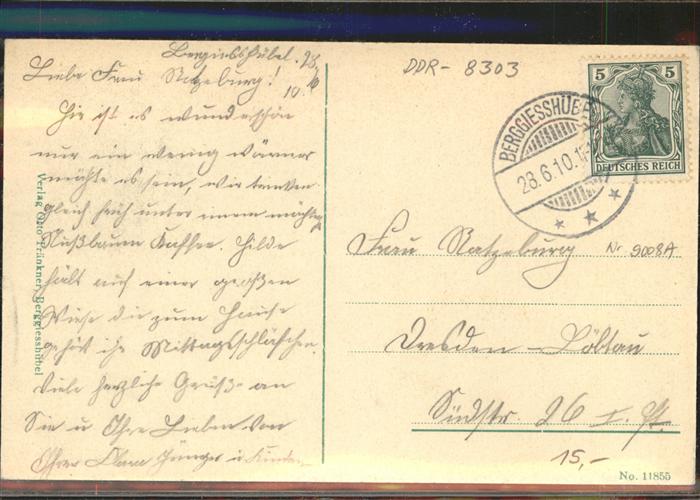 Berggießhübel. 28/6 10.
Liebe Frau Ratzeburg!
Hier ist es wunderschön
nur ein wenig wärmer
möchte es sein, wir tranken
gleich früh unter einem mächtigen
Nußbaum Kaffee. Hilde
hält auf einer großen
Wiese die zum Hause
gehört ihr Mittagsschläfchen.
Viele herzliche Grüße an
Sie u Ihre Lieben von
Ihrer u Kinder
Verlag Otto Tränkner, Berggiesshübel
DDR- 8303
5 5
DEUTSCHES REICH
BERGGIESSHÜBEL
28.6.10.
Frau Ratzeburg
Nr 9008A
Dresden - Löbtau
Südstr. 26 I. Et.
15,-
No. 11855